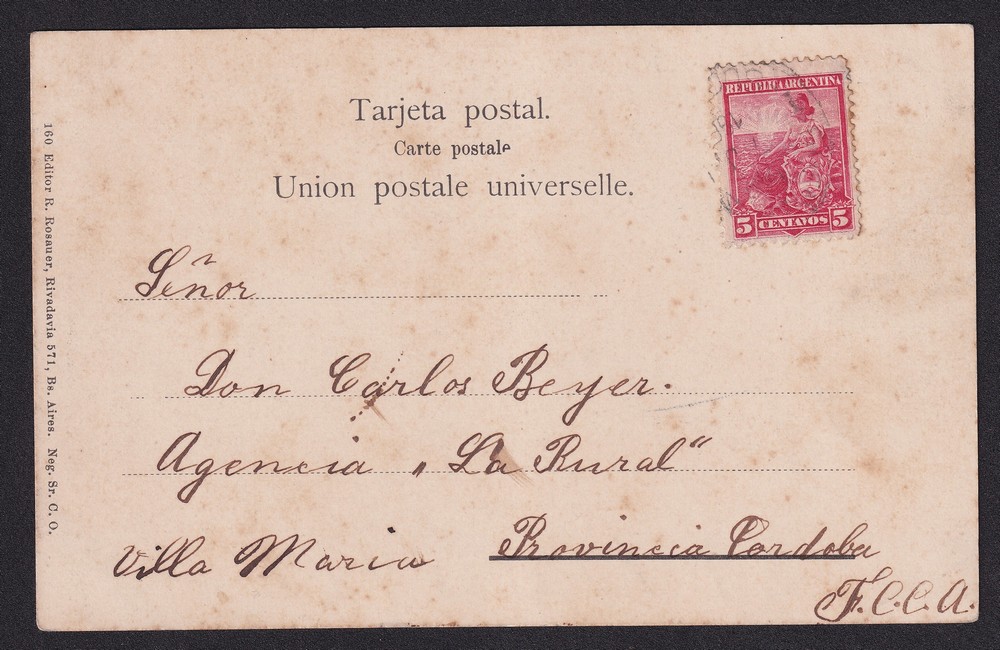 Tarjeta postal.
Carte postale
Union postale universelle.
REPUBLICA ARGENTINA
5 CENTAVOS 5
Señor
Don Carlos Beyer.
Agencia „La Rural“
Villa Maria Provincia Cordoba
F.C.C.A.
160 Editor R. Rosauer, Rivadavia 571, Bs. Aires. Neg. Sr. C. O.